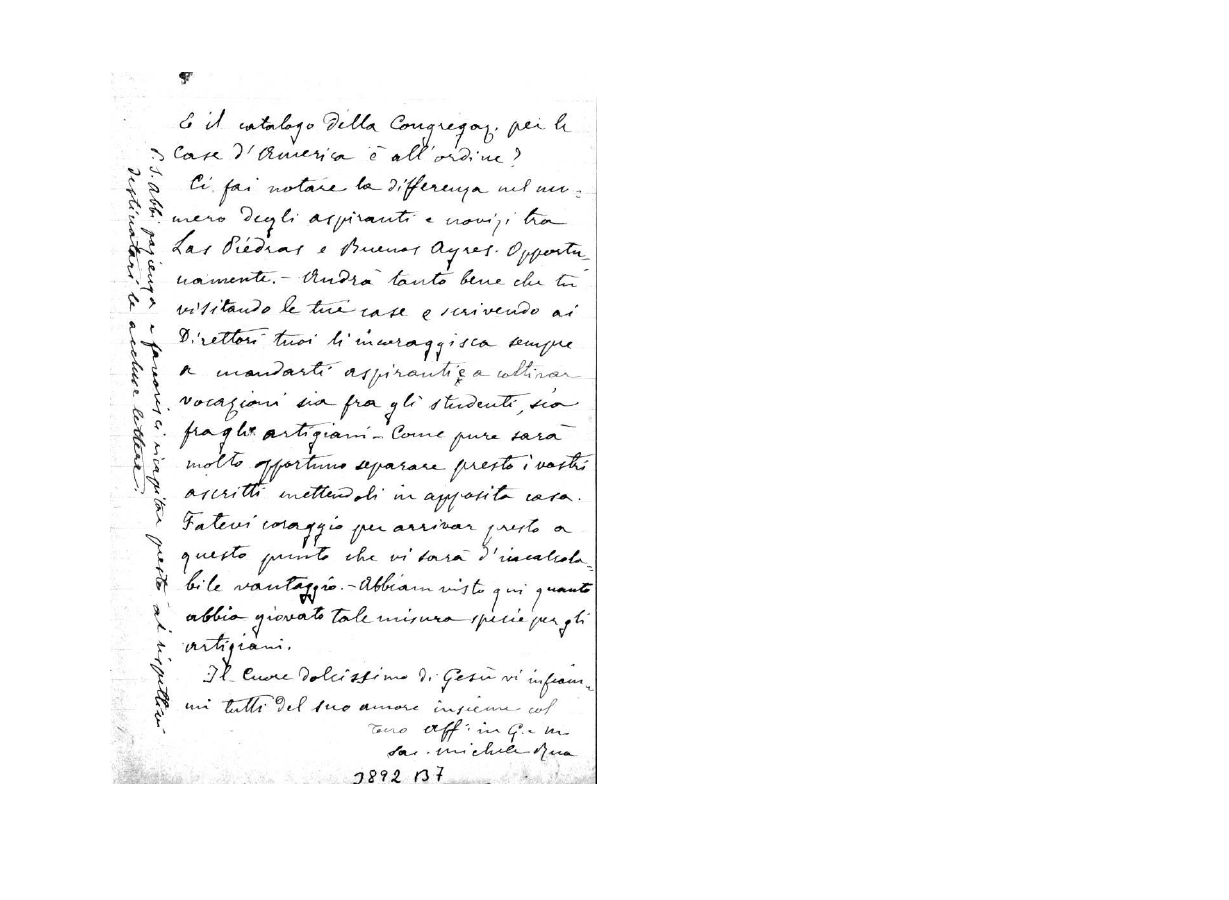 E il catalogo della Congregaz. per le
Case d'America è all'ordine?
Ci fai notare la differenza nel nu-
mero degli aspiranti e novizi tra
Las Piédras e Buenos Ayres. Opportu-
namente. - Andrà tanto bene che tu
visitando le tue case e scrivendo ai
Direttori tuoi li incoraggisca sempre
a mandarti aspiranti e a coltivar
vocazioni sia fra gli studenti, sia
fra gli artigiani - Come pure sarà
molto opportuno separare presto i vostri
ascritti mettendoli in apposita casa.
Fatevi coraggio per arrivar presto a
questo punto che vi sarà d'incalcola-
bile vantaggio. - Abbiam visto qui quanto
abbia giovato tale misura specie per gli
artigiani.
Il Cuore dolcissimo di Gesù vi infiam-
mi tutti del suo amore insieme col
tuo aff: in G. e M
Sac. Michele Rua
3892 B7
P.S. Abbi pazienza e favorisci ricapitar presto ai rispettivi
destinatari le accluse lettere.